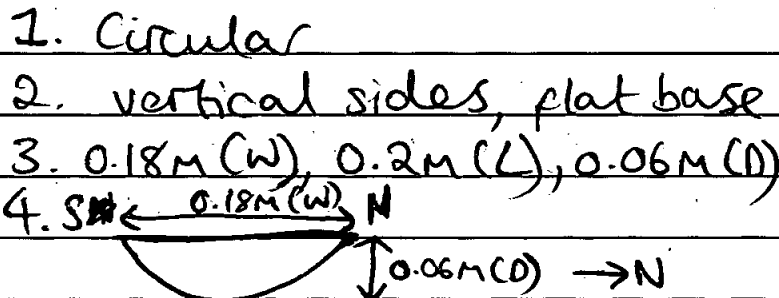 1. Circular
2. vertical sides, flat base
3. 0.18m (W), 0.2m (L), 0.06m (D)
4. S 0.18m (W) N
0.06m (D) → N